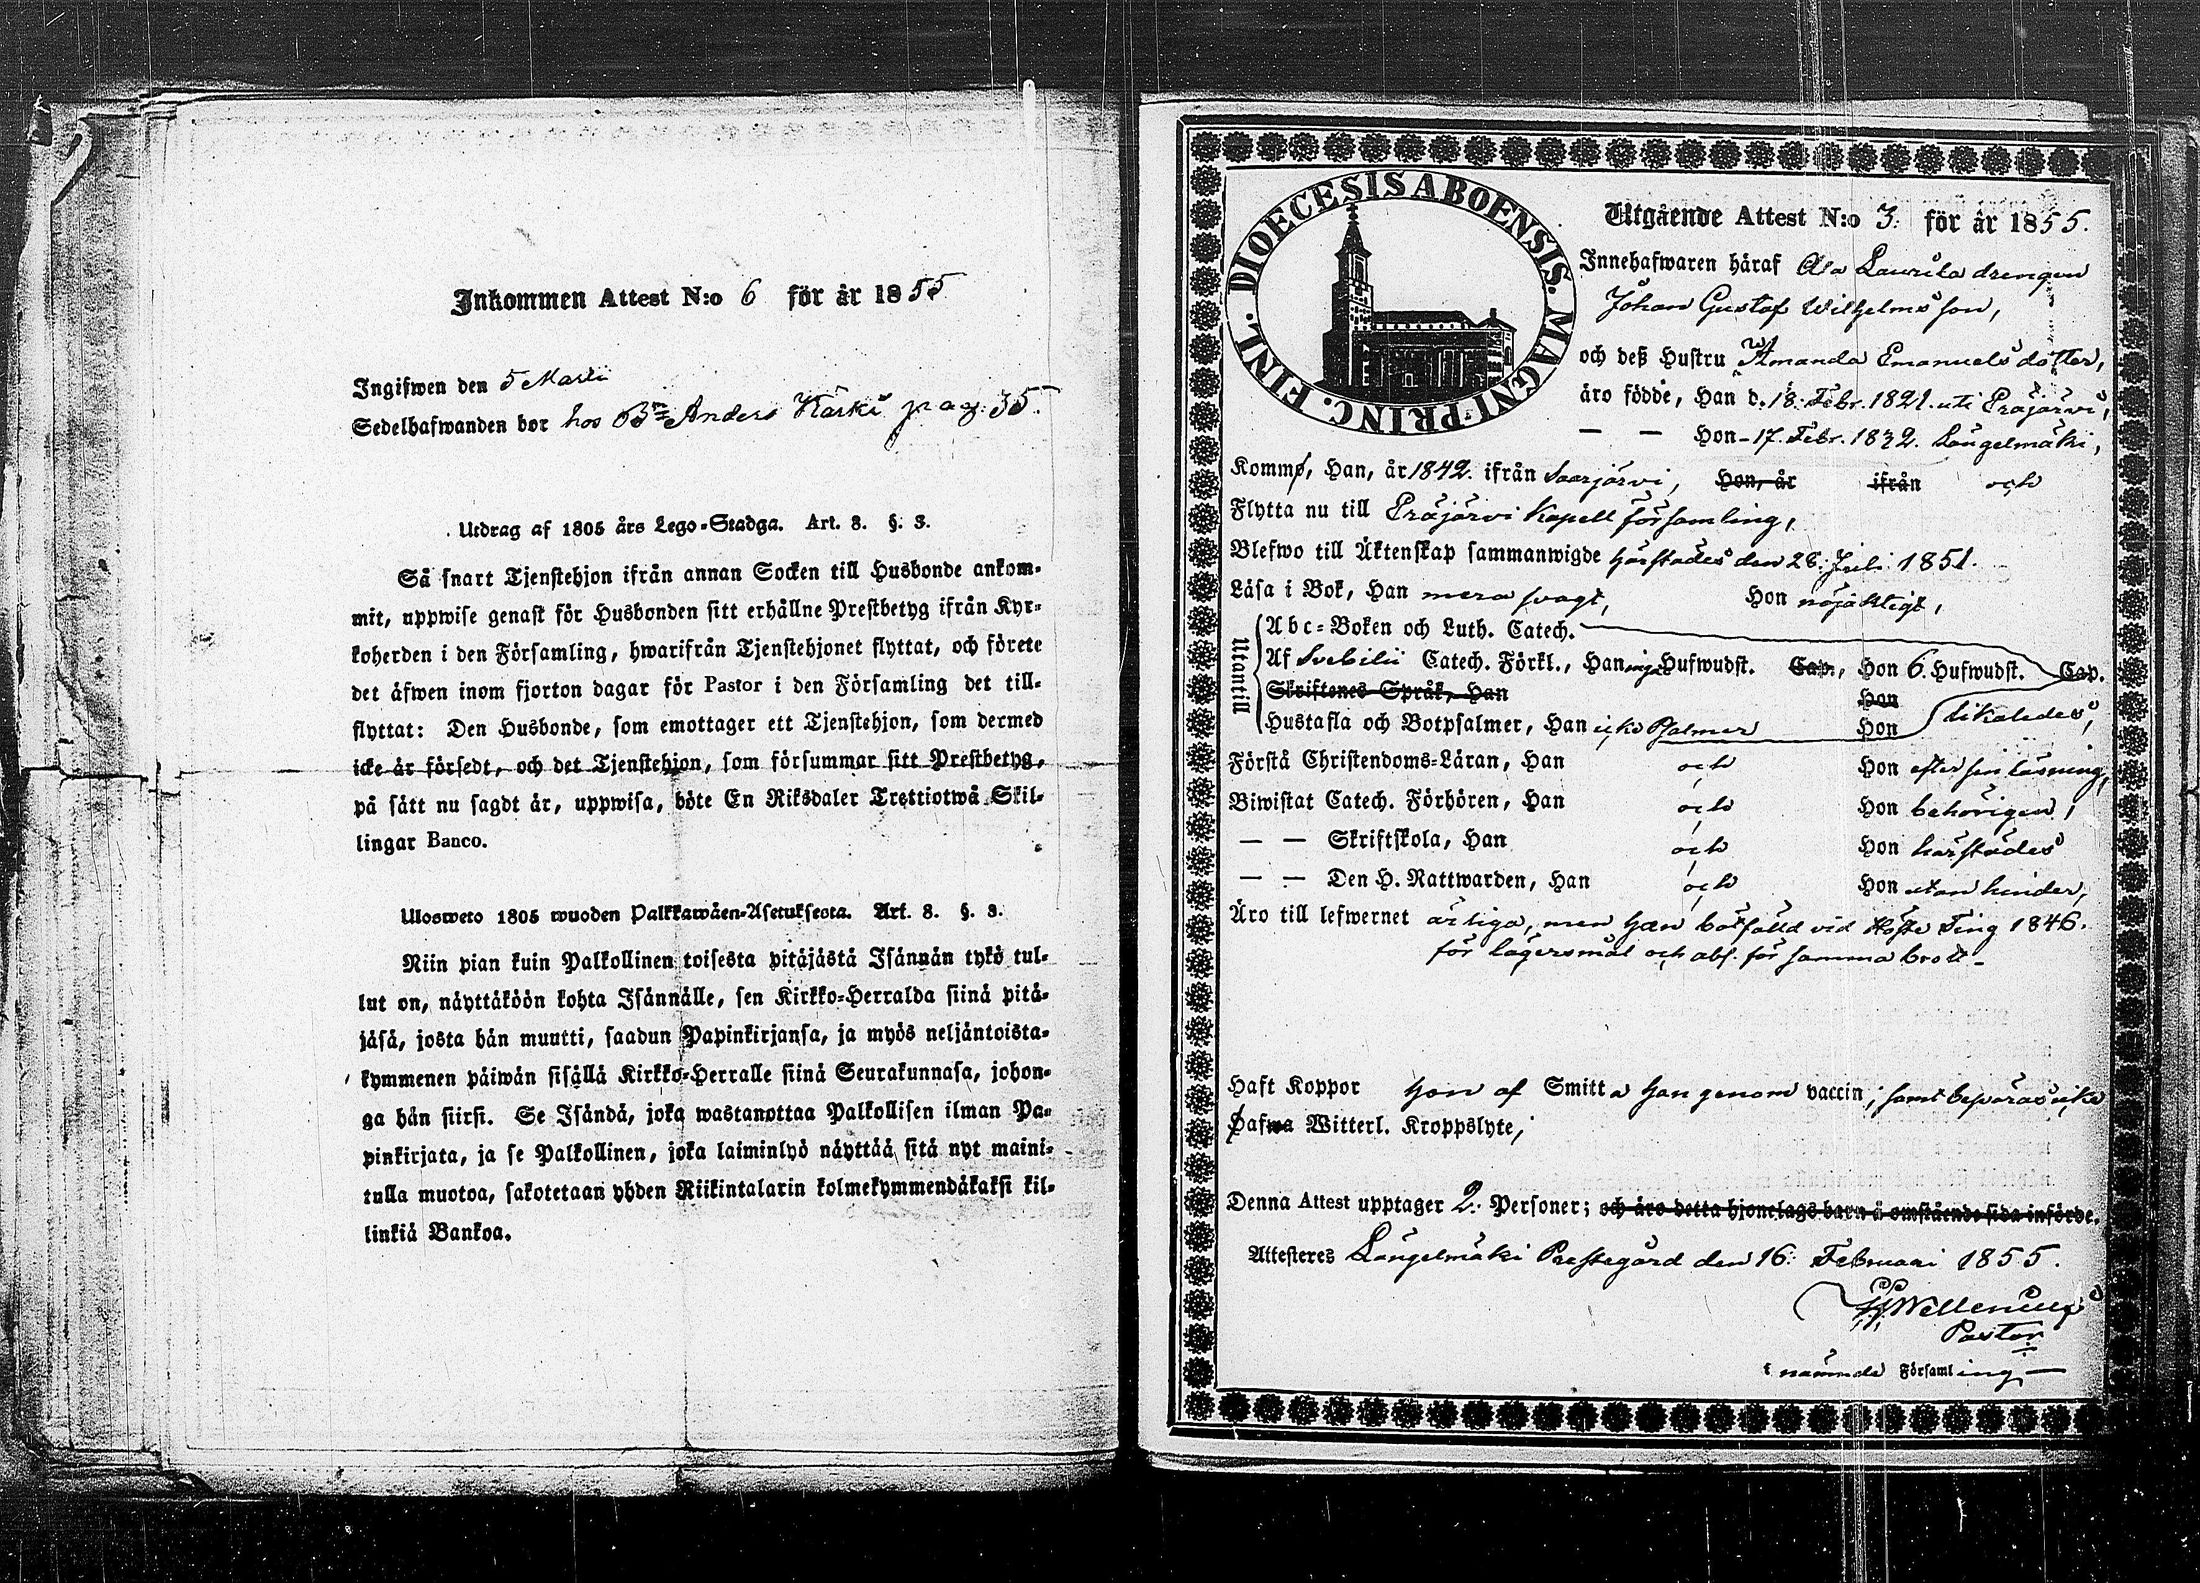 Inkommen Attest N:o 6 för år 1855
Ingifwen den 5 Martii
Sedelhafwanden bor hos Bn Anders Kärki pag. 35.
Utdrag af 1805 års Lego-Stadga. Art. 8. §. 3.
Så snart Tjenstehjon ifrån annan Socken till Husbonde ankom-
mit, uppwise genast för Husbonden sitt erhållne Prestbetyg ifrån Kyr-
koherden i den Församling, hwarifrån Tjenstehjonet flyttat, och förete
det äfwen inom fjorton dagar för Pastor i den Församling det till-
flyttat: Den Husbonde, som emottager ett Tjenstehjon, som dermed
icke är försedt, och det Tjenstehjon, som försummar sitt Prestbetyg,
på sätt nu sagdt är, uppwisa, böte En Riksdaler Trettiotwå Skil-
lingar Banco.
Ulosweto 1805 wuoden Palkkawäen-Asetuksesta. Art. 8. §. 3.
Niin pian kuin Palkollinen toisesta pitäjästä Isännän tykö tul-
lut on, näyttäköön kohta Isännälle, sen Kirkko-Herralda siinä pitä-
jäsä, josta hän muutti, saadun Papinkirjansa, ja myös neljäntoista-
kymmenen päiwän sisällä Kirkko-Herralle siinä Seurakunnasa, johon-
ga hän siirsi. Se Isändä, joka wastanottaa Palkollisen ilman Pa-
pinkirjata, ja se Palkollinen, joka laiminlyö näyttää sitä nyt maini-
tulla muotoa, sakotetaan yhden Riikintalarin kolmekymmendäkaksi kil-
linkiä Bankoa.
DIOECESIS ABOENSIS. MAGNI PRINC. FINL.
Utgående Attest N:o 3. för år 1855.
Innehafwaren häraf Ala Laurila drengen
Johan Gustaf Wilhelmsson,
och deß Hustru Amanda Emanuelsdotter,
äro födde, Han d. 18. Febr. 1821. uti Eräjärvi,
— — Hon - 17. Febr. 1832. Längelmäki,
Kommo, Han, år 1842. ifrån Saarjärvi, Hon, år ifrån och
Flytta nu till Eräjärvi Kapell församling,
Blefwo till Äktenskap sammanwigde härstädes den 28. Juli 1851.
Läsa i Bok, Han mera svagt, Hon nöjaktigt,
Utantill
Abc-Boken och Luth. Catech.
Af Svebilii Catech. Förkl., Han inga Hufwudst. Cap., Hon 6. Hufwudst. Cap.
Skriftenes Språk, Han Hon
Hustafla och Botpsalmer, Han icke Psalmer Hon likaledes,
Förstå Christendoms-Läran, Han och Hon efter sin läsning,
Biwistat Catech. Förhören, Han och Hon behörigen,
— — Skriftskola, Han och Hon härstädes
— — Den H. Nattwarden, Han och Hon utan hinder,
Äro till lefwernet ärliga, men han botfälld vid Höste Ting 1846.
för lägersmål och abs. för samma brott.
Haft Koppor hon af Smitta han genom vaccin, samt bespöras icke
Hafwa Witterl. Kroppslyte,
Denna Attest upptager 2. Personer; och äro detta hjonelags barn å omstående sida införde.
Attesteres Längelmäki Prestegård den 16. Februari 1855.
Wellenius
Pastor
i nämnde Församling